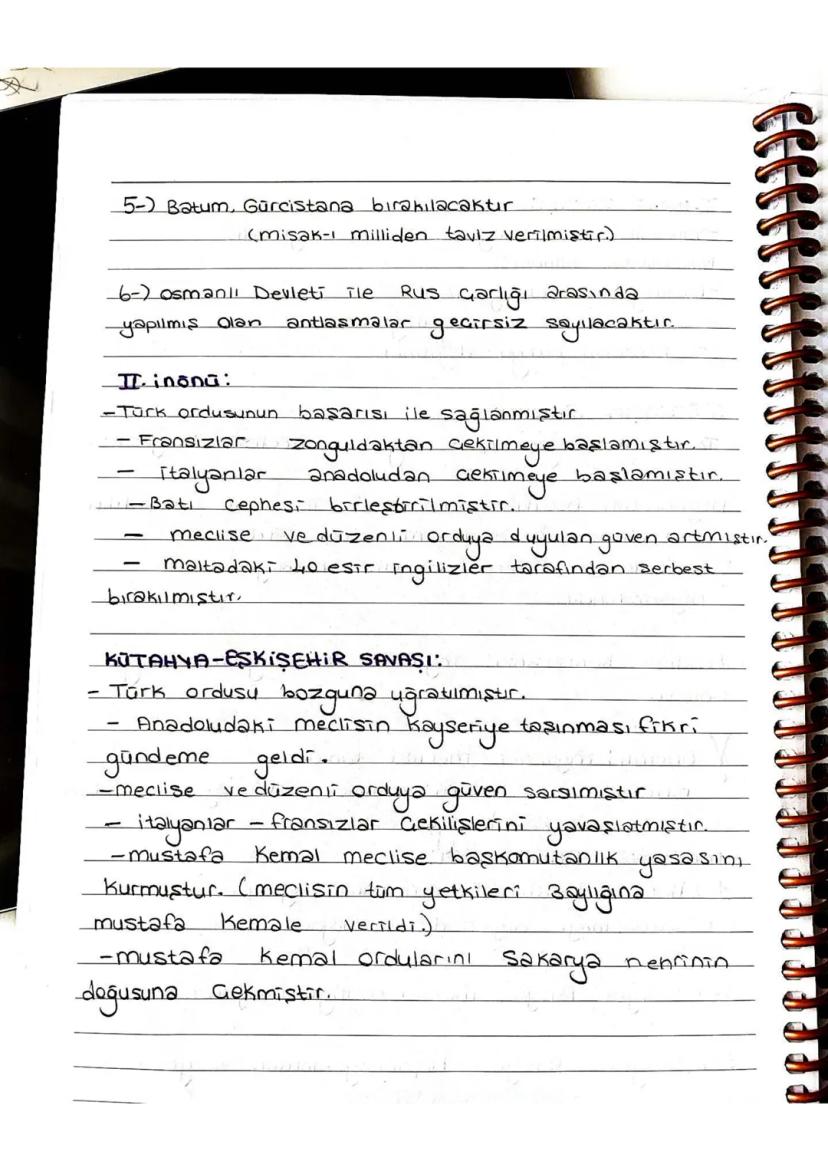 5-) Batum, Gürcistana bırakılacaktır
(misak-ı milliden taviz verilmiştir.)
6-) osmanlı Devleti ile Rus çarlığı arasında
yapılmış olan antlaşmalar geçirsiz sayılacaktır.
II. inönü:
-Türk ordusunun başarısı ile sağlanmıştır
- Fransızlar zonguldaktan çekilmeye başlamıştır.
- italyanlar anadoludan çekilmeye başlamıştır.
-Batı cephesi birleştirilmiştir.
- meclise ve düzenli orduya duyulan güven artmıştır.
- maltadaki 40 esir ingilizler tarafından serbest
bırakılmıştır.
KÜTAHYA-ESKİŞEHİR SAVAŞI:
- Türk ordusu bozguna uğratılmıştır.
- Anadoludaki meclisin Kayseriye taşınması fikri
gündeme geldi.
-meclise ve düzenli orduya güven sarsılmıştır
- italyanlar - fransızlar çekilişlerini yavaşlatmıştır.
-mustafa Kemal meclise başkomutanlık yasasını
kurmuştur. (meclisin tüm yetkileri 3aylığına
mustafa Kemale verildi.)
-mustafa Kemal ordularını Sakarya nehrinin
doğusuna çekmiştir.